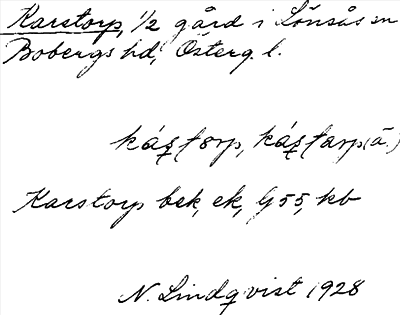 Karstorp, 1/2 gård i Lönsås sn
Bobergs hd, Österg. l.
Karstorp bek, ek, G 55, kb
N. Lindqvist 1928